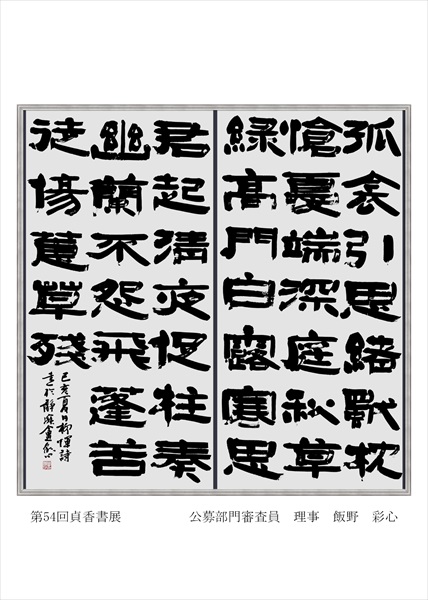 孤衾引思緒獨枕
愴憂端深庭秋草
綠高門白露寒思
君起清夜促柱奏
幽蘭不怨飛蓬苦
徒傷蕙草殘
己亥夏日柳惲詩
書於靜
第54回貞香書展　公募部門審査員　理事　飯野　彩心